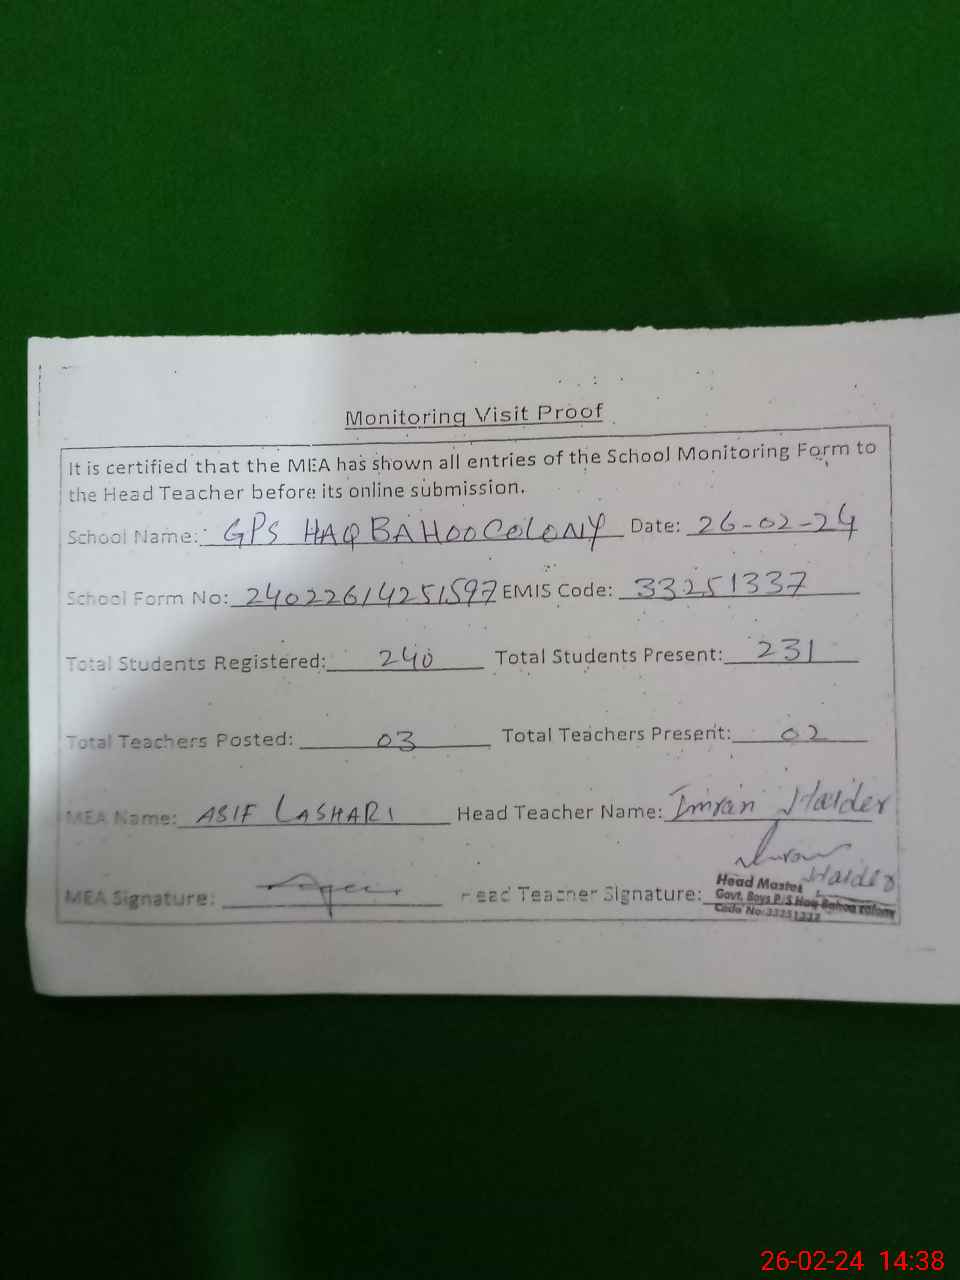 Monitoring Visit Proof
It is certified that the MEA has shown all entries of the School Monitoring Form to
the Head Teacher before its online submission.
School Name: GPS HAQ BAHOO COLONY Date: 26-02-24
School Form No: 24022614251597 EMIS Code: 33251337
Total Students Registered: 240 Total Students Present: 231
Total Teachers Posted: 03 Total Teachers Present: 02
MEA Name: ASIF LASHARI Head Teacher Name: Imran Haider
MEA Signature: Head Teacher Signature: Imran Haider
Head Master
Govt. Boys P/S Haq Bahoo Colony
Code No:
26-02-24 14:38